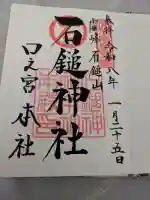 奉拝 令和八年 一月二十五日
石鎚山
石鎚神社
口之宮 本社